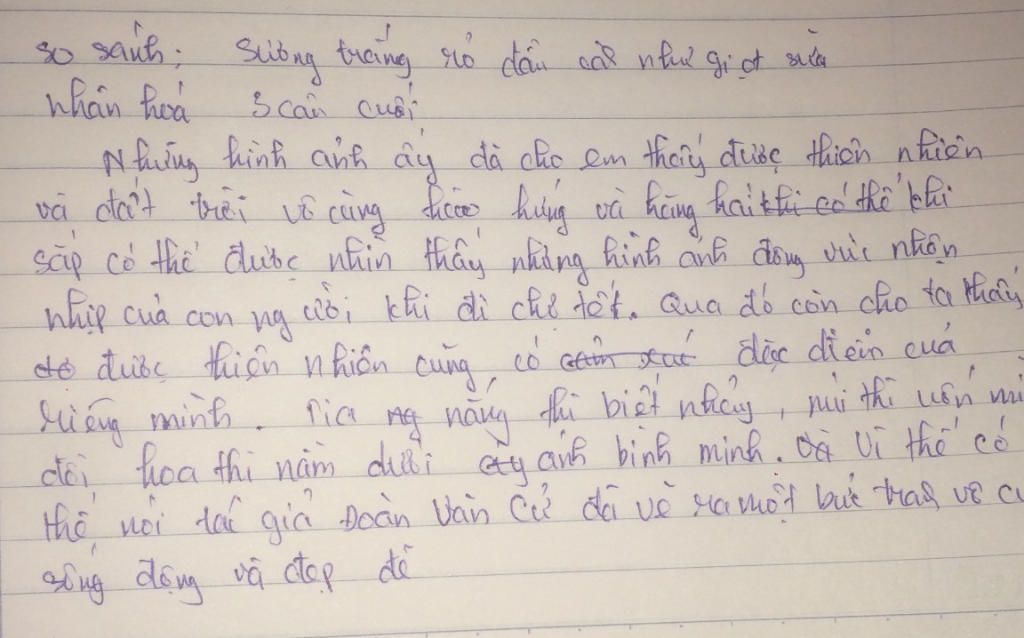 so sánh: Sương trắng rỏ đầu cành như giọt sữa
nhân hoá 3 câu cuối
Những hình ảnh ấy đã cho em thấy được thiên nhiên
và đất trời vô cùng hào hứng và hăng hái khi có thể khi
sắp có thể được nhìn thấy những hình ảnh đông vui nhộn
nhịp của con người khi đi chợ tết. Qua đó còn cho ta thấy
được thiên nhiên cũng có đặc điểm của
riêng mình. Tia nắng thì biết nhảy, núi thì uốn mì
đồi hoa thì nằm dưới ánh bình minh. Vì thế có
thể nói tác giả Đoàn Văn Cừ đã vẽ ra một bức tranh vô c
sống động và đẹp đẽ